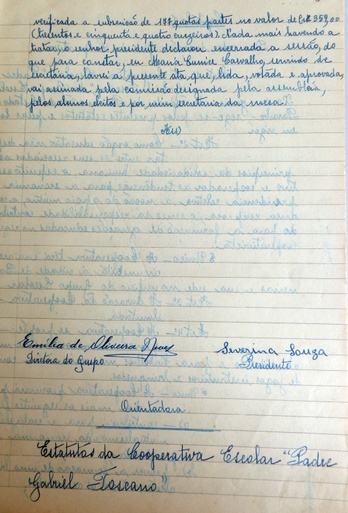 verificada a subscrição de 177 quotas partes no valor de Cr$ 354,00
(trezentos e cinquenta e quatro cruzeiros). Nada mais havendo a
tratar, o senhor presidente declarou encerrada a sessão, do
que para constar, eu Maria Eunice Carvalho, servindo de
secretária, lavrei a presente ata que, lida, votada e aprovada,
vai assinada pela comissão designada pela assembléia,
pelos alunos eleitos e por mim secretaria da mesa.
Emilia de Oliveira
Severina Souza
Diretora do Grupo
Presidente
Orientadora
Estatutos da Cooperativa Escolar "Padre
Gabriel Toscano"